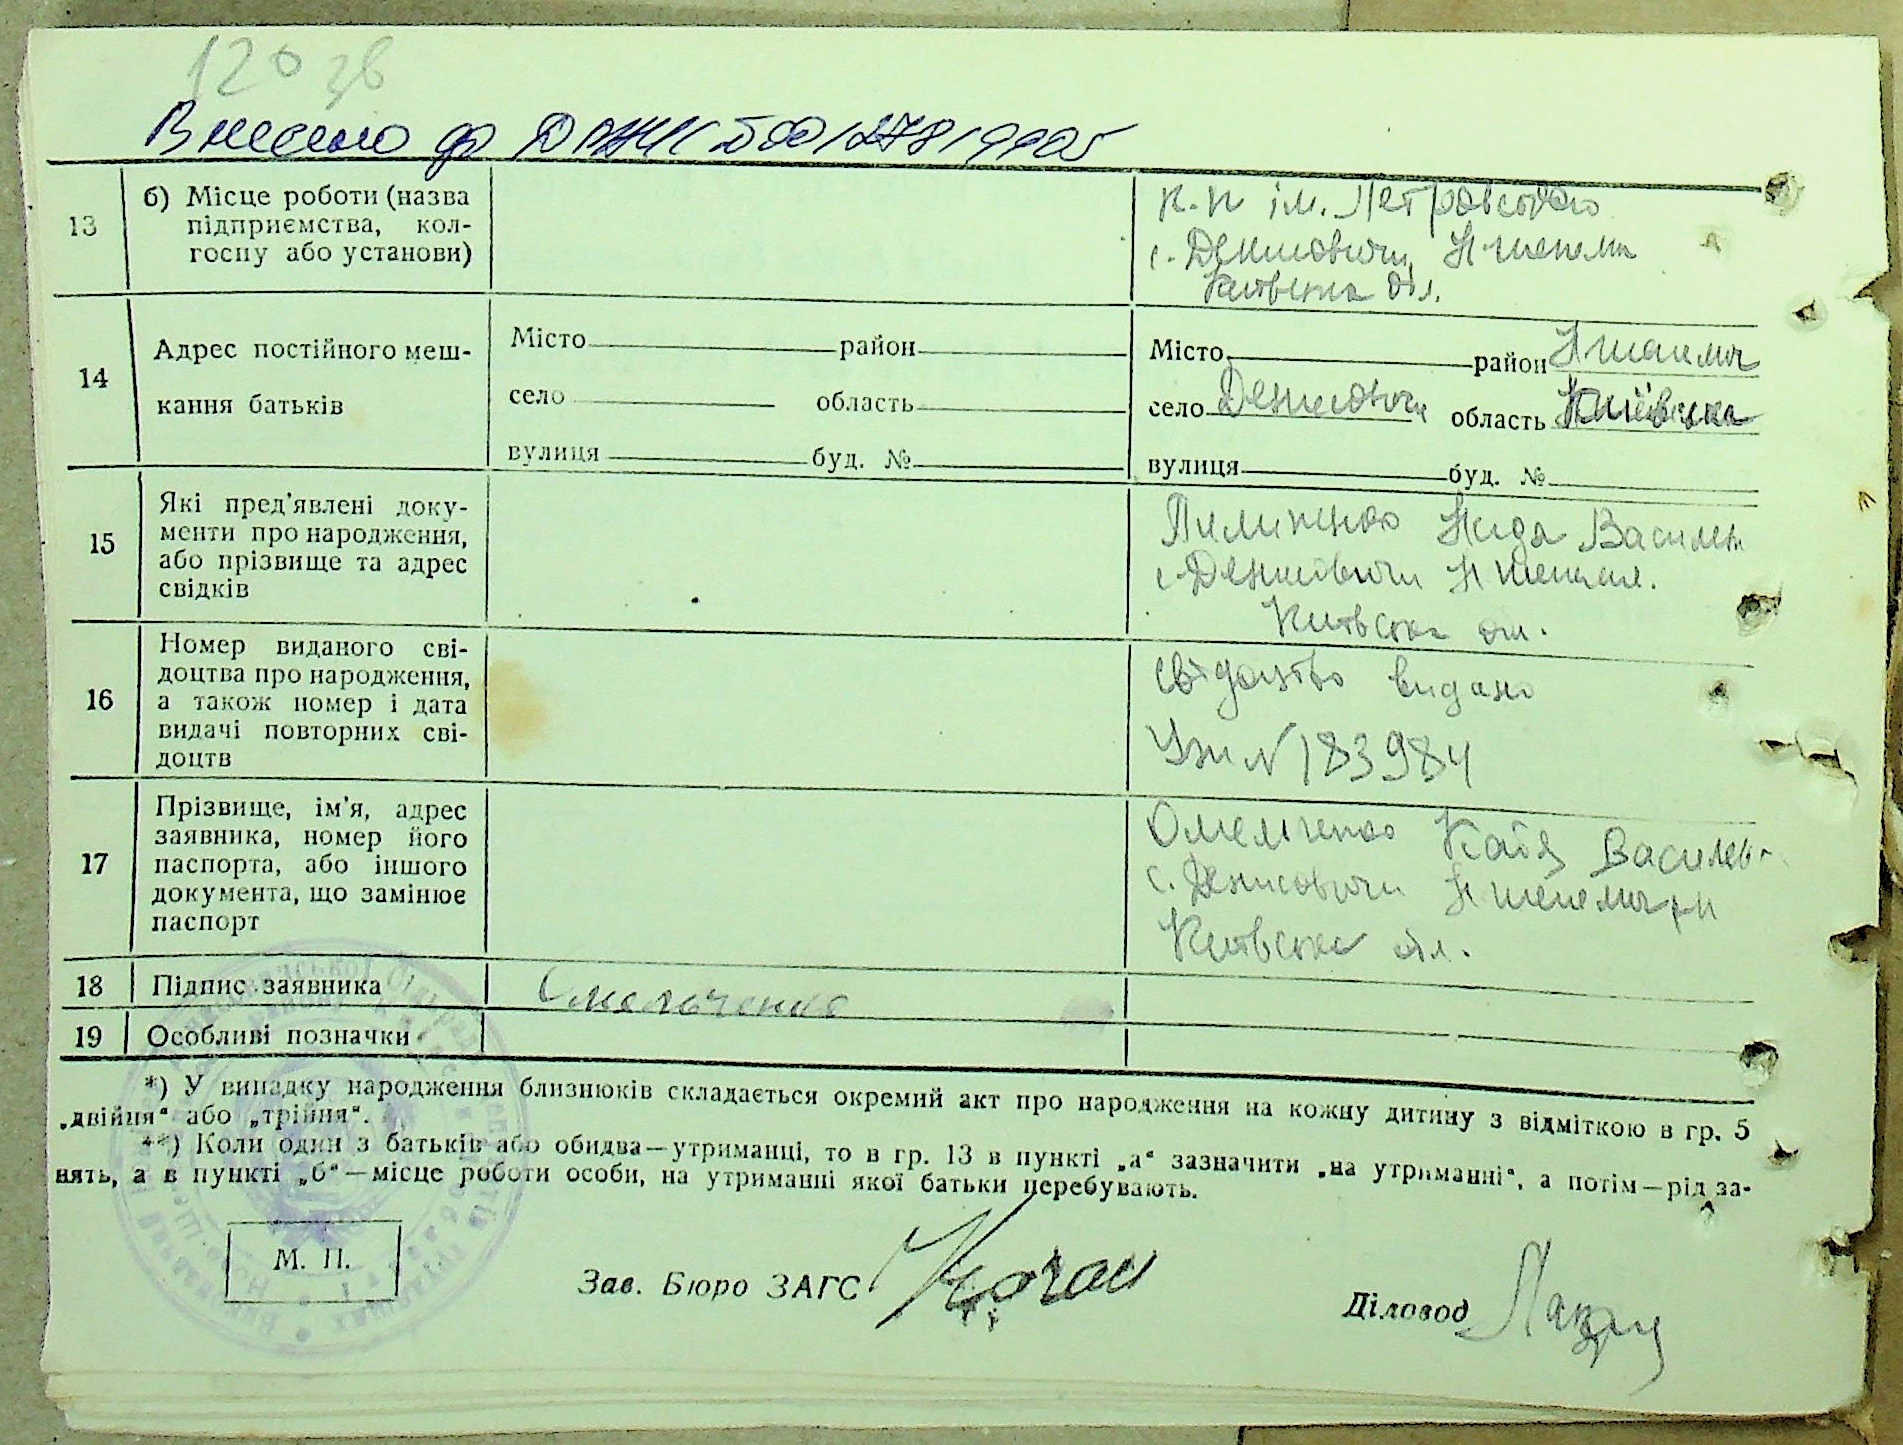 120 зв
Внесено до ДРАЦС 00127819905
13
б) Місце роботи (назва
підприємства, кол-
госпу або установи)
к-п ім. Петровського
с. Денисовичи
Київська обл.
14
Адрес постійного меш-
кання батьків
Місто район
село область
вулиця буд. №
Місто район
село Денисовичи область Київська
вулиця буд. №
15
Які пред'явлені доку-
менти про народження,
або прізвище та адрес
свідків
Пилипенко Василев
с. Денисовичи
Київська обл.
16
Номер виданого сві-
доцтва про народження,
а також номер і дата
видачі повторних сві-
доцтв
свідоцтво видано
N 183984
17
Прізвище, ім'я, адрес
заявника, номер його
паспорта, або іншого
документа, що замінює
паспорт
Омельченко Катя Василев
с. Денисовичи р-н
Київська обл.
18 Підпис заявника
Омельченко
19 Особливі позначки
*) У випадку народження близнюків складається окремий акт про народження на кожну дитину з відміткою в гр. 5
„двійня“ або „трійня“.
**) Коли один з батьків або обидва—утриманці, то в гр. 13 в пункті „а“ зазначити „на утриманні“, а потім—рід за-
нять, а в пункті „б“—місце роботи особи, на утриманні якої батьки перебувають.
М. П.
Зав. Бюро ЗАГС
Діловод